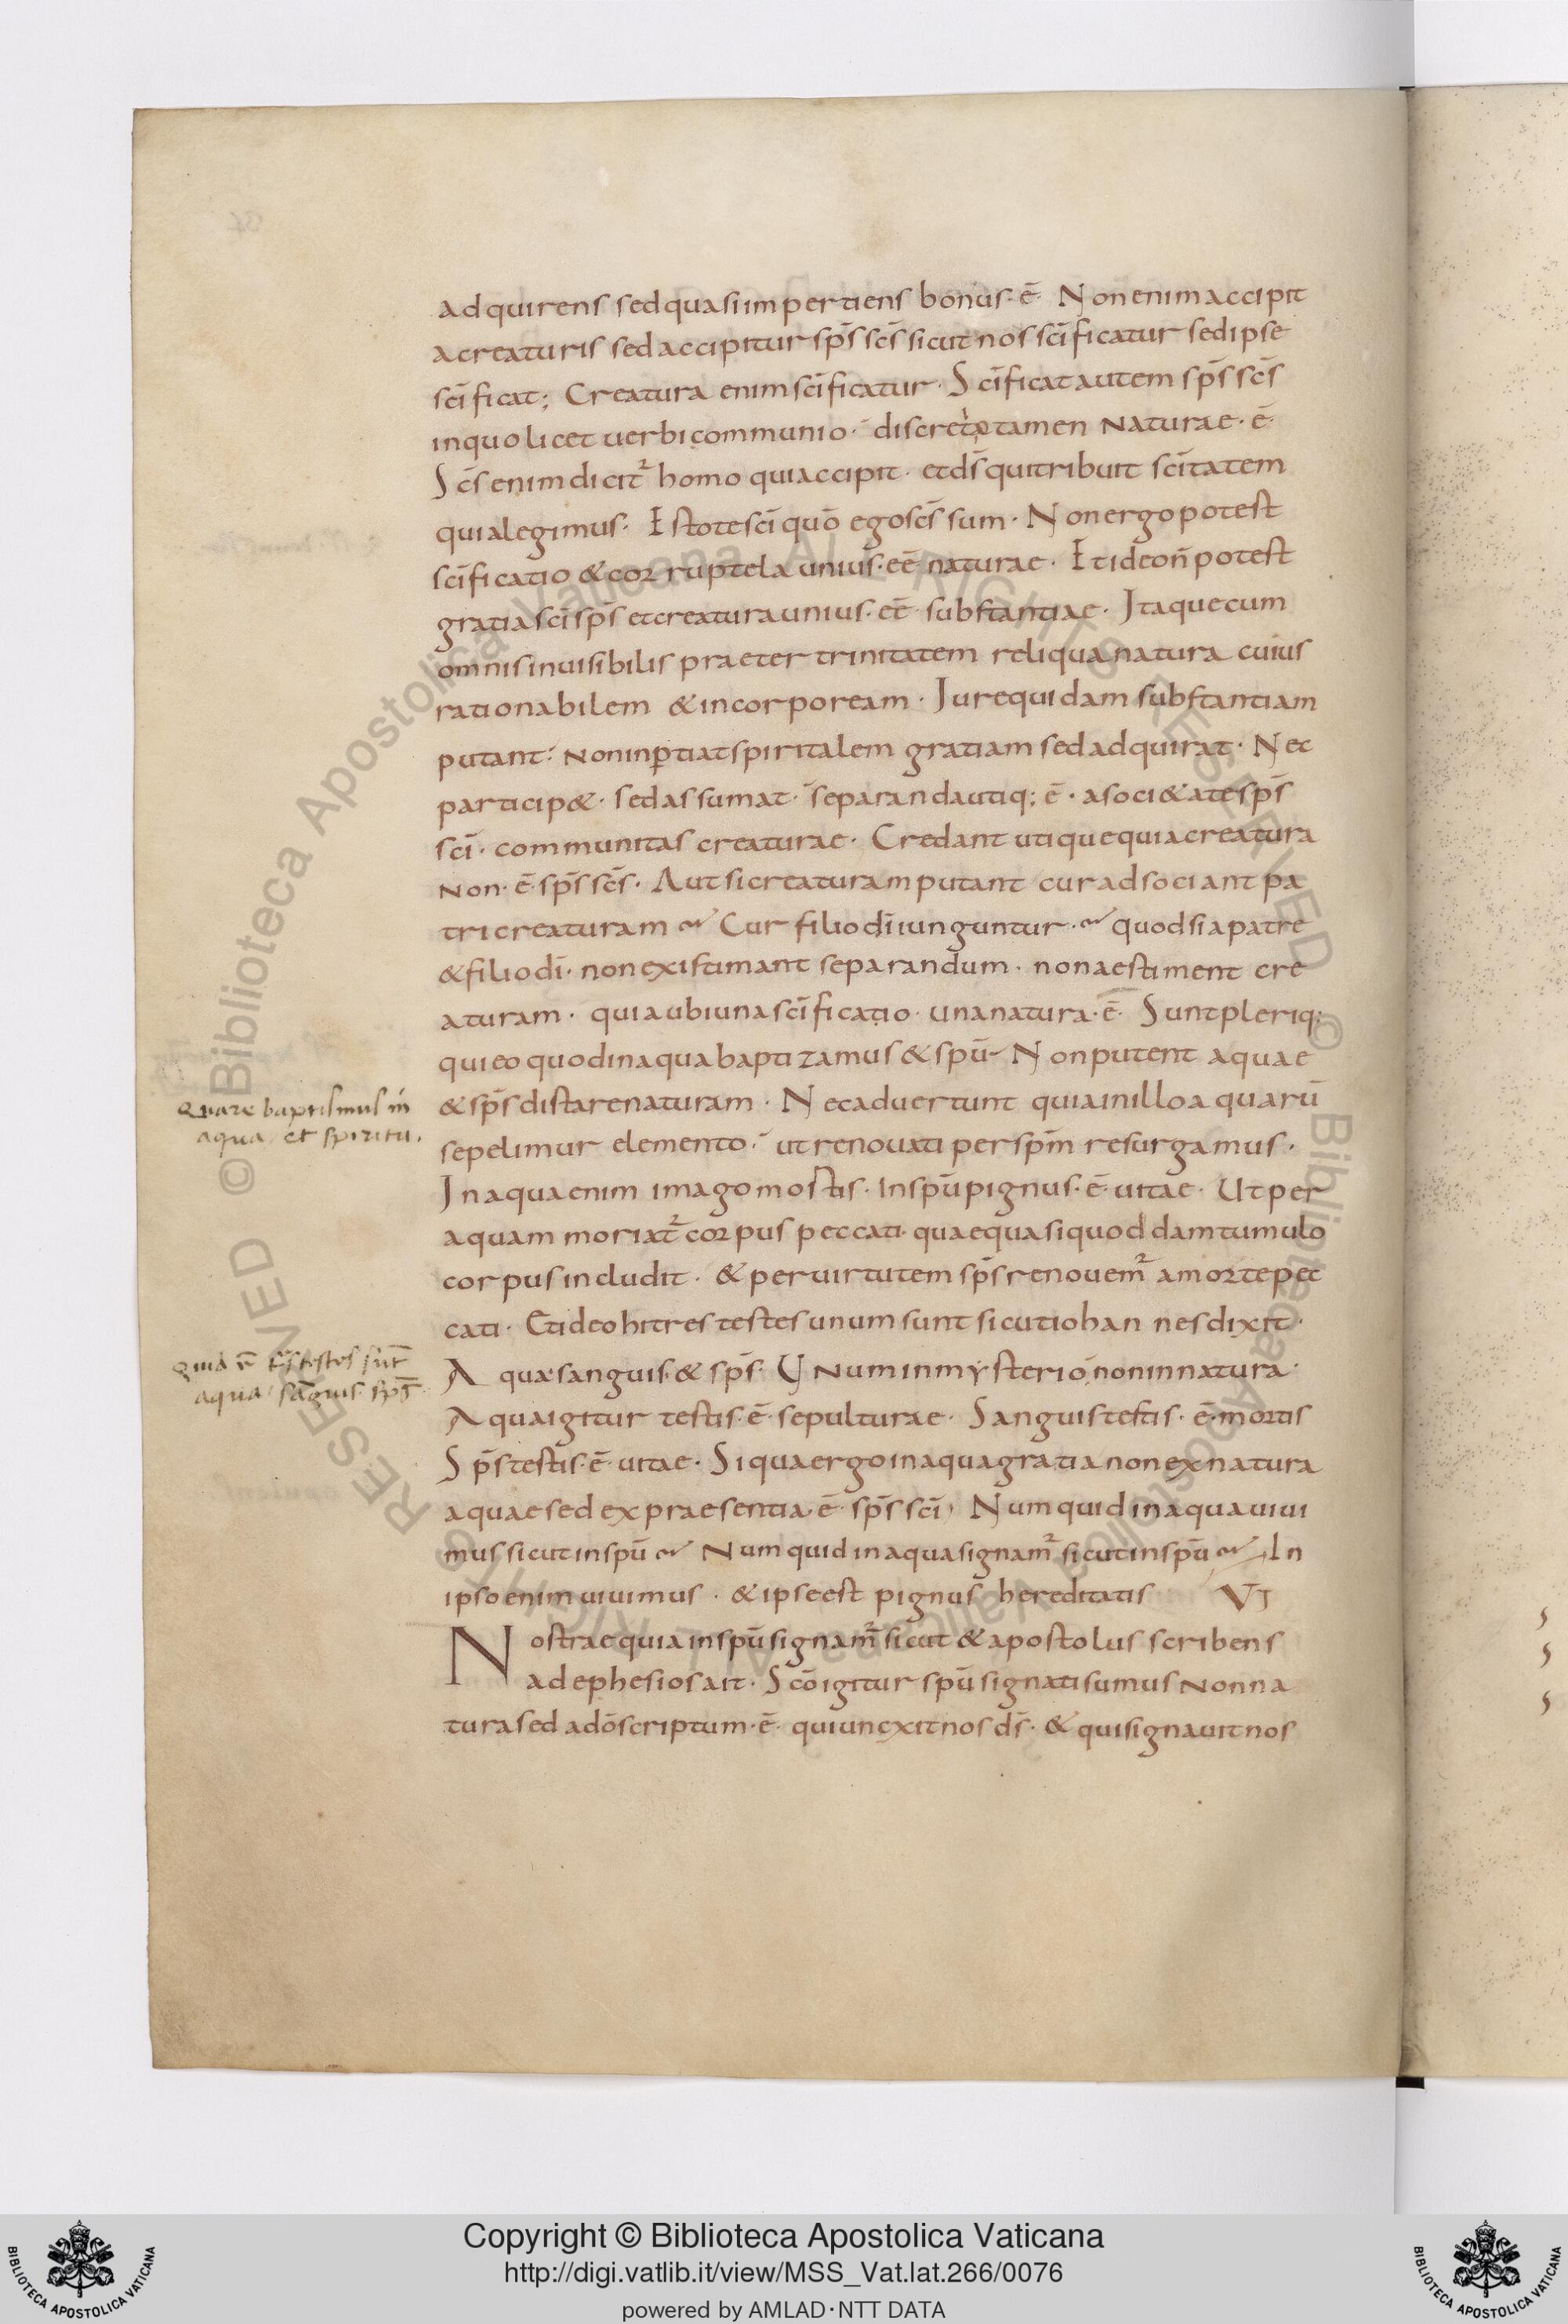 adquirens sed quasi impertiens bonus · ē · Non enim accipit
a creaturis sed accipitur sp̄s sc̄s sicut nos sc̄ificatur sed ipse
sc̄ificat; Creatura enim sc̄ificatur · Sc̄ificat autem sp̄s sc̄s
in quo licet uerbi communio · tamen naturae · ē ·
Sc̄s enim dicit᷑ homo qui accipit · et ds̄ qui tribuit sc̄itatem
quia legimus · Estote sc̄i quō ego sc̄s sum · Non ergo potest
sc̄ificatio & corruptela unius · eē · naturae · Et ideo n̄ potest
gratia sc̄i sp̄s et creatura unius · eē · substantiae · Itaque cum
omnis inuisibilis praeter trinitatem reliqua natura cuius
rationabilem & incorpoream · Iure quidam substantiam
putant · non inꝑtiat spiritalem gratiam sed adquirat · Nec
particip& · sed assumat · separanda utiq; ē · a soci&ate sp̄s
sc̄i · communitas creaturae · Credant utique quia creatura
non · ē · sp̄s sc̄s · Aut si creaturam putant cur adsociant pa
tri creaturam ? Cur filio dī iunguntur · ? quod si a patre
& filio dī · non existimant separandum · non aestiment cre
aturam · quia ubi una sc̄ificatio · una natura · ē · Sunt pleriq;
qui eo quod in aqua baptizamus & spū · Non putent aquae
& sp̄s distare naturam · Nec aduertunt quia in illo aquarū
sepelimur elemento · ut renouati per spm̄ resurgamus ·
In aqua enim imago mortis · In spū pignus · ē · uitae · Ut per
aquam moriat᷑ corpus peccati · quae quasi quoddam tumulo
corpus includit · & per uirtutem sp̄s renouem᷑ a morte pec
cati · Et ideo hi tres testes unum sunt sicut iohannes dixit ·
Aqua · sanguis · & sp̄s · Unum in mysterio, non in natura ·
Aqua igitur testis · ē · sepulturae · Sanguis testis · ē · mortis
Sp̄s testis · ē · uitae · Si qua ergo in aqua gratia non ex natura
aquae sed ex praesentia · ē · sp̄s sc̄i · Numquid in aqua uiui
mus sicut in spū ? Numquid in aqua signam᷑ sicut in spū ? In
ipso enim uiuimus · & ipse est pignus hereditatis VI
Nostrae quia in spū signam᷑ sicut & apostolus scribens
ad ephesios ait · Scō igitur spū signati sumus Non na
tura sed a dō scriptum · ē · qui unexit nos ds̄ · & qui signauit nos
Quare baptismus in
aqua et spiritu.
testes sūt
aqua sāguis sp̄s
Copyright © Biblioteca Apostolica Vaticana
http://digi.vatlib.it/view/MSS_Vat.lat.266/0076
powered by AMLAD·NTT DATA
BIBLIOTECA APOSTOLICA VATICANA
BIBLIOTECA APOSTOLICA VATICANA
© Biblioteca Apostolica Vaticana ALL RIGHTS RESERVED
© Biblioteca Apostolica Vaticana ALL RIGHTS RESERVED